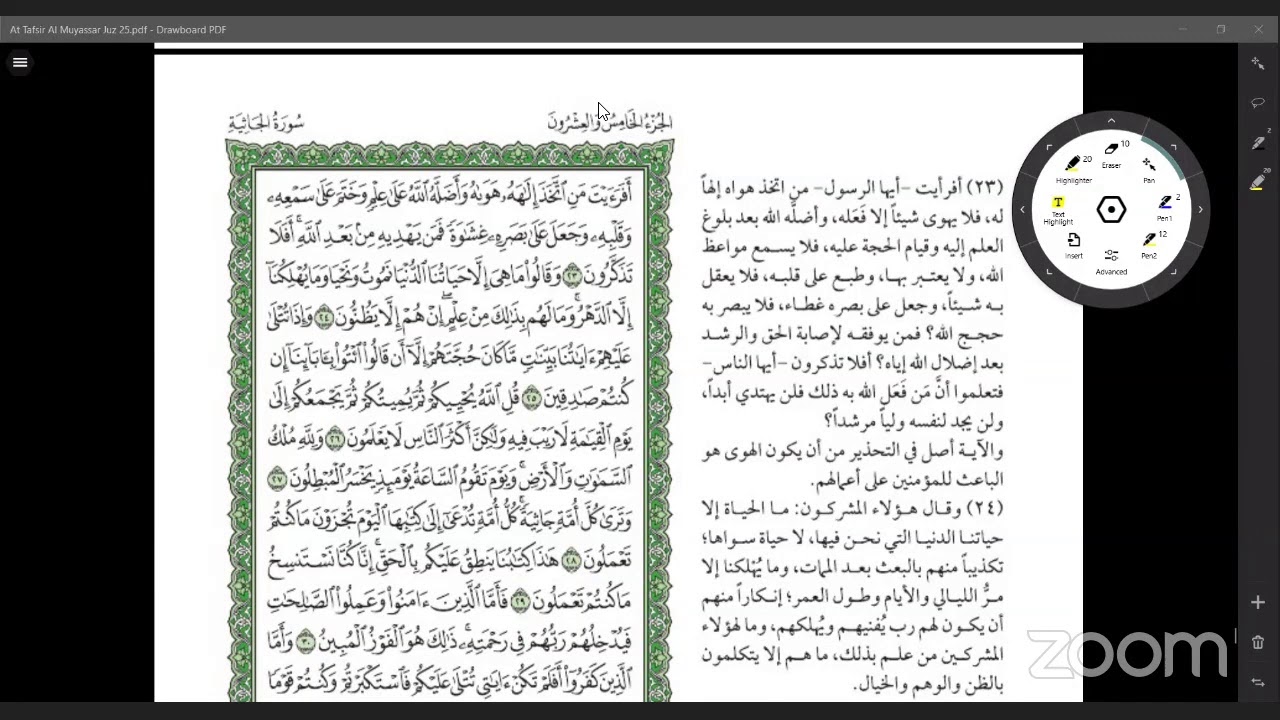 At Tafsir Al Muyassar Juz 25.pdf - Drawboard PDF
سُورَةُ الجَاثِيَةِ
الجُزْءُ الخَامِسُ وَالعِشْرُونَ
أَفَرَءَيْتَ مَنِ ٱتَّخَذَ إِلَٰهَهُۥ هَوَىٰهُ وَأَضَلَّهُ ٱللَّهُ عَلَىٰ عِلْمٍ وَخَتَمَ عَلَىٰ سَمْعِهِۦ
وَقَلْبِهِۦ وَجَعَلَ عَلَىٰ بَصَرِهِۦ غِشَٰوَةً فَمَن يَهْدِيهِ مِنۢ بَعْدِ ٱللَّهِۚ أَفَلَا
تَذَكَّرُونَ ٢٣ وَقَالُوا۟ مَا هِىَ إِلَّا حَيَاتُنَا ٱلدُّنْيَا نَمُوتُ وَنَحْيَا وَمَا يُهْلِكُنَآ
إِلَّا ٱلدَّهْرُۚ وَمَا لَهُم بِذَٰلِكَ مِنْ عِلْمٍۖ إِنْ هُمْ إِلَّا يَظُنُّونَ ٢٤ وَإِذَا تُتْلَىٰ
عَلَيْهِمْ ءَايَٰتُنَا بَيِّنَٰتٍ مَّا كَانَ حُجَّتَهُمْ إِلَّآ أَن قَالُوا۟ ٱئْتُوا۟ بِـَٔابَآئِنَآ إِن
كُنتُمْ صَٰدِقِينَ ٢٥ قُلِ ٱللَّهُ يُحْيِيكُمْ ثُمَّ يُمِيتُكُمْ ثُمَّ يَجْمَعُكُمْ إِلَىٰ
يَوْمِ ٱلْقِيَٰمَةِ لَا رَيْبَ فِيهِ وَلَٰكِنَّ أَكْثَرَ ٱلنَّاسِ لَا يَعْلَمُونَ ٢٦ وَلِلَّهِ مُلْكُ
ٱلسَّمَٰوَٰتِ وَٱلْأَرْضِۚ وَيَوْمَ تَقُومُ ٱلسَّاعَةُ يَوْمَئِذٍ يَخْسَرُ ٱلْمُبْطِلُونَ ٢٧
وَتَرَىٰ كُلَّ أُمَّةٍ جَاثِيَةًۚ كُلُّ أُمَّةٍ تُدْعَىٰٓ إِلَىٰ كِتَٰبِهَا ٱلْيَوْمَ تُجْزَوْنَ مَا كُنتُمْ
تَعْمَلُونَ ٢٨ هَٰذَا كِتَٰبُنَا يَنطِقُ عَلَيْكُم بِٱلْحَقِّۚ إِنَّا كُنَّا نَسْتَنسِخُ
مَا كُنتُمْ تَعْمَلُونَ ٢٩ فَأَمَّا ٱلَّذِينَ ءَامَنُوا۟ وَعَمِلُوا۟ ٱلصَّٰلِحَٰتِ
فَيُدْخِلُهُمْ رَبُّهُمْ فِى رَحْمَتِهِۦۚ ذَٰلِكَ هُوَ ٱلْفَوْزُ ٱلْمُبِينُ ٣٠ وَأَمَّا
ٱلَّذِينَ كَفَرُوٓا۟ أَفَلَمْ تَكُنْ ءَايَٰتِى تُتْلَىٰ عَلَيْكُمْ فَٱسْتَكْبَرْتُمْ وَكُنتُمْ قَوْمًا
(٢٣) أفرأيت -أيها الرسول- من اتخذ هواه إلهاً
له، فلا يهوى شيئاً إلا فَعَله، وأضلَّه الله بعد بلوغ
العلم إليه وقيام الحجة عليه، فلا يسمع مواعظ
الله، ولا يعتبر بها، وطبع على قلبه، فلا يعقل
به شيئاً، وجعل على بصره غطاء، فلا يبصر به
حجج الله؟ فمن يوفقه لإصابة الحق والرشد
بعد إضلال الله إياه؟ أفلا تذكرون -أيها الناس-
فتعلموا أنَّ مَن فَعَل الله به ذلك فلن يهتدي أبداً،
ولن يجد لنفسه ولياً مرشداً؟
والآية أصل في التحذير من أن يكون الهوى هو
الباعث للمؤمنين على أعمالهم.
(٢٤) وقال هؤلاء المشركون: ما الحياة إلا
حياتنا الدنيا التي نحن فيها، لا حياة سواها؛
تكذيباً منهم بالبعث بعد الممات، وما يُهْلكنا إلا
مرُّ الليالي والأيام وطول العمر؛ إنكاراً منهم
أن يكون لهم رب يُفنيهم ويُهلكهم، وما لهؤلاء
المشركين من علم بذلك، ما هم إلا يتكلمون
بالظن والوهم والخيال.
Highlighter 20
Eraser 10
Pan
Text Highlight
Pen1 2
Insert
Pen2 12
Advanced
2
20
zoom